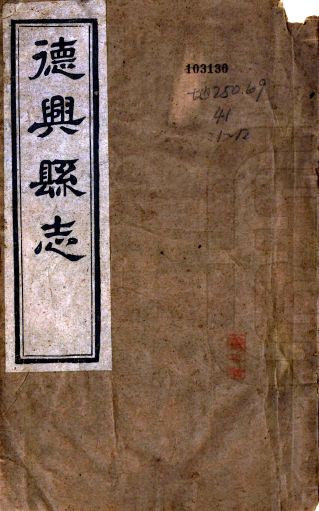 德興縣志
103130
地250.69
41
1~12